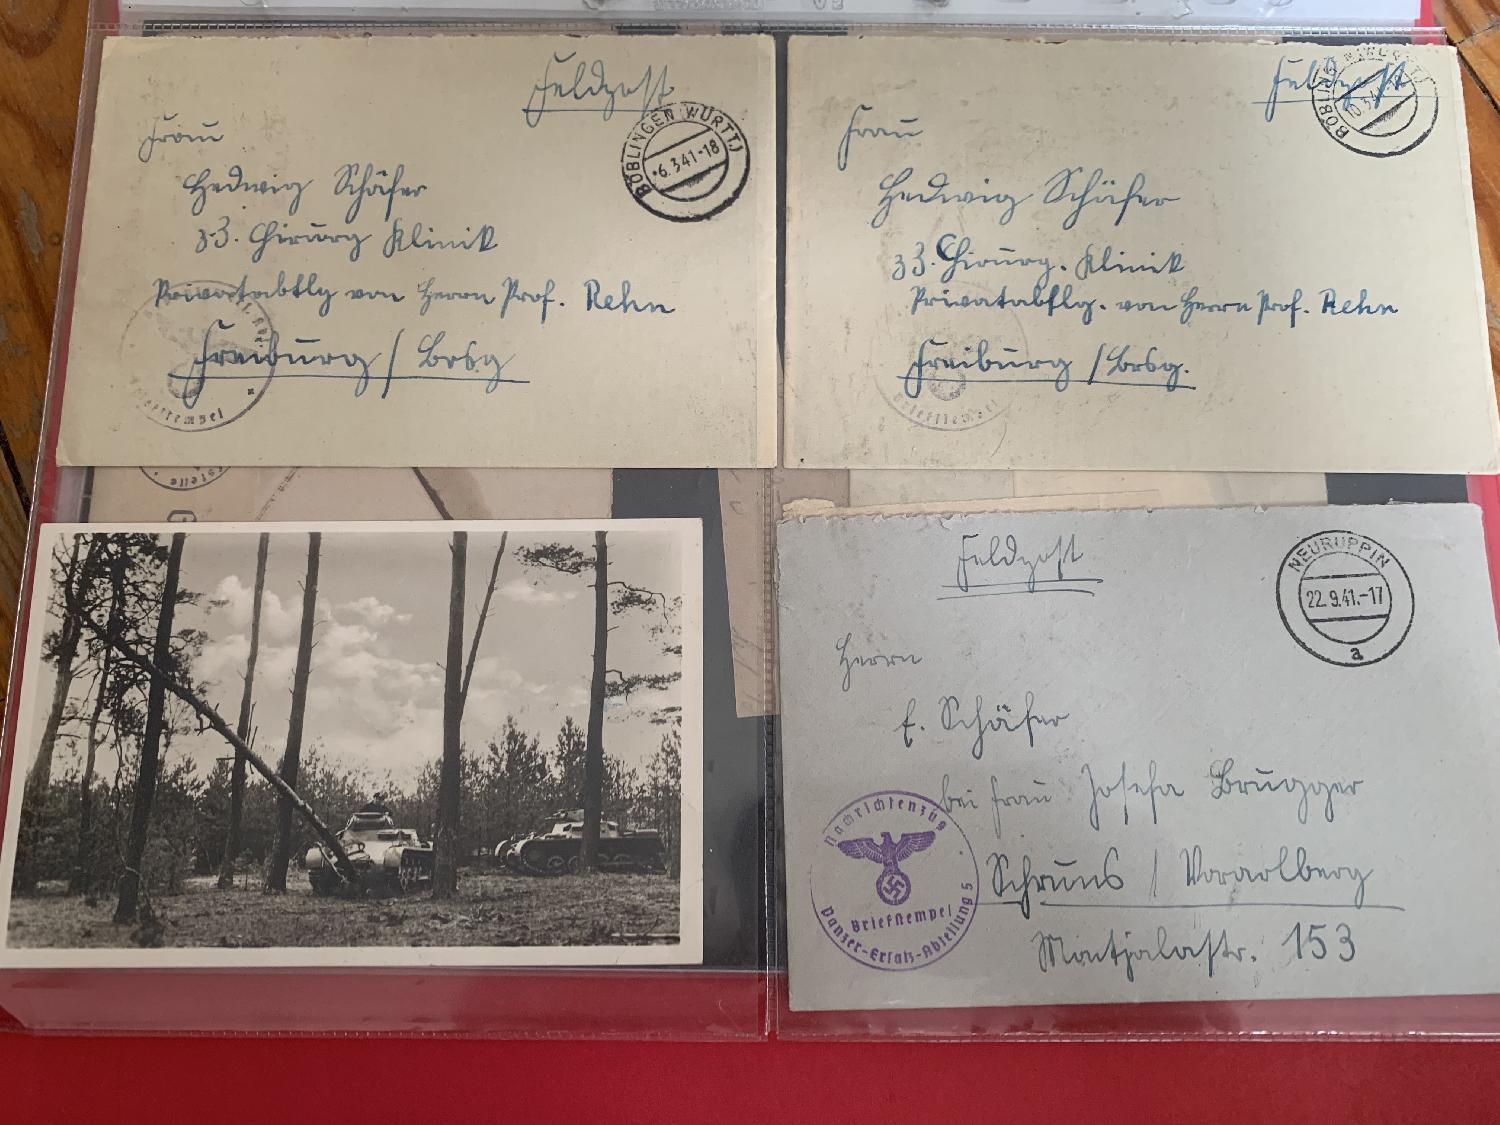 Feldpost
BÖBLINGEN (WÜRTT.)
6.3.41-18
Frau
Hedwig Schäfer
z.Z. Chirurg Klinik
Privatabtlg von Herrn Prof. Rehn
Freiburg / Brsg
Briefstempel
Feldpost
BÖBLINGEN (WÜRTT.)
10.3.41
Frau
Hedwig Schäfer
z.Z. Chirurg. Klinik
Privatabtlg. von Herrn Prof. Rehn
Freiburg / Brsg.
Briefstempel
Feldpost
NEURUPPIN
22.9.41.-17
a
Herrn
E. Schäfer
bei Frau Josefa Brugger
Schruns / Vorarlberg
Montjolastr. 153
Nachrichtenzug
Briefstempel
Panzer-Ersatz-Abteilung 5